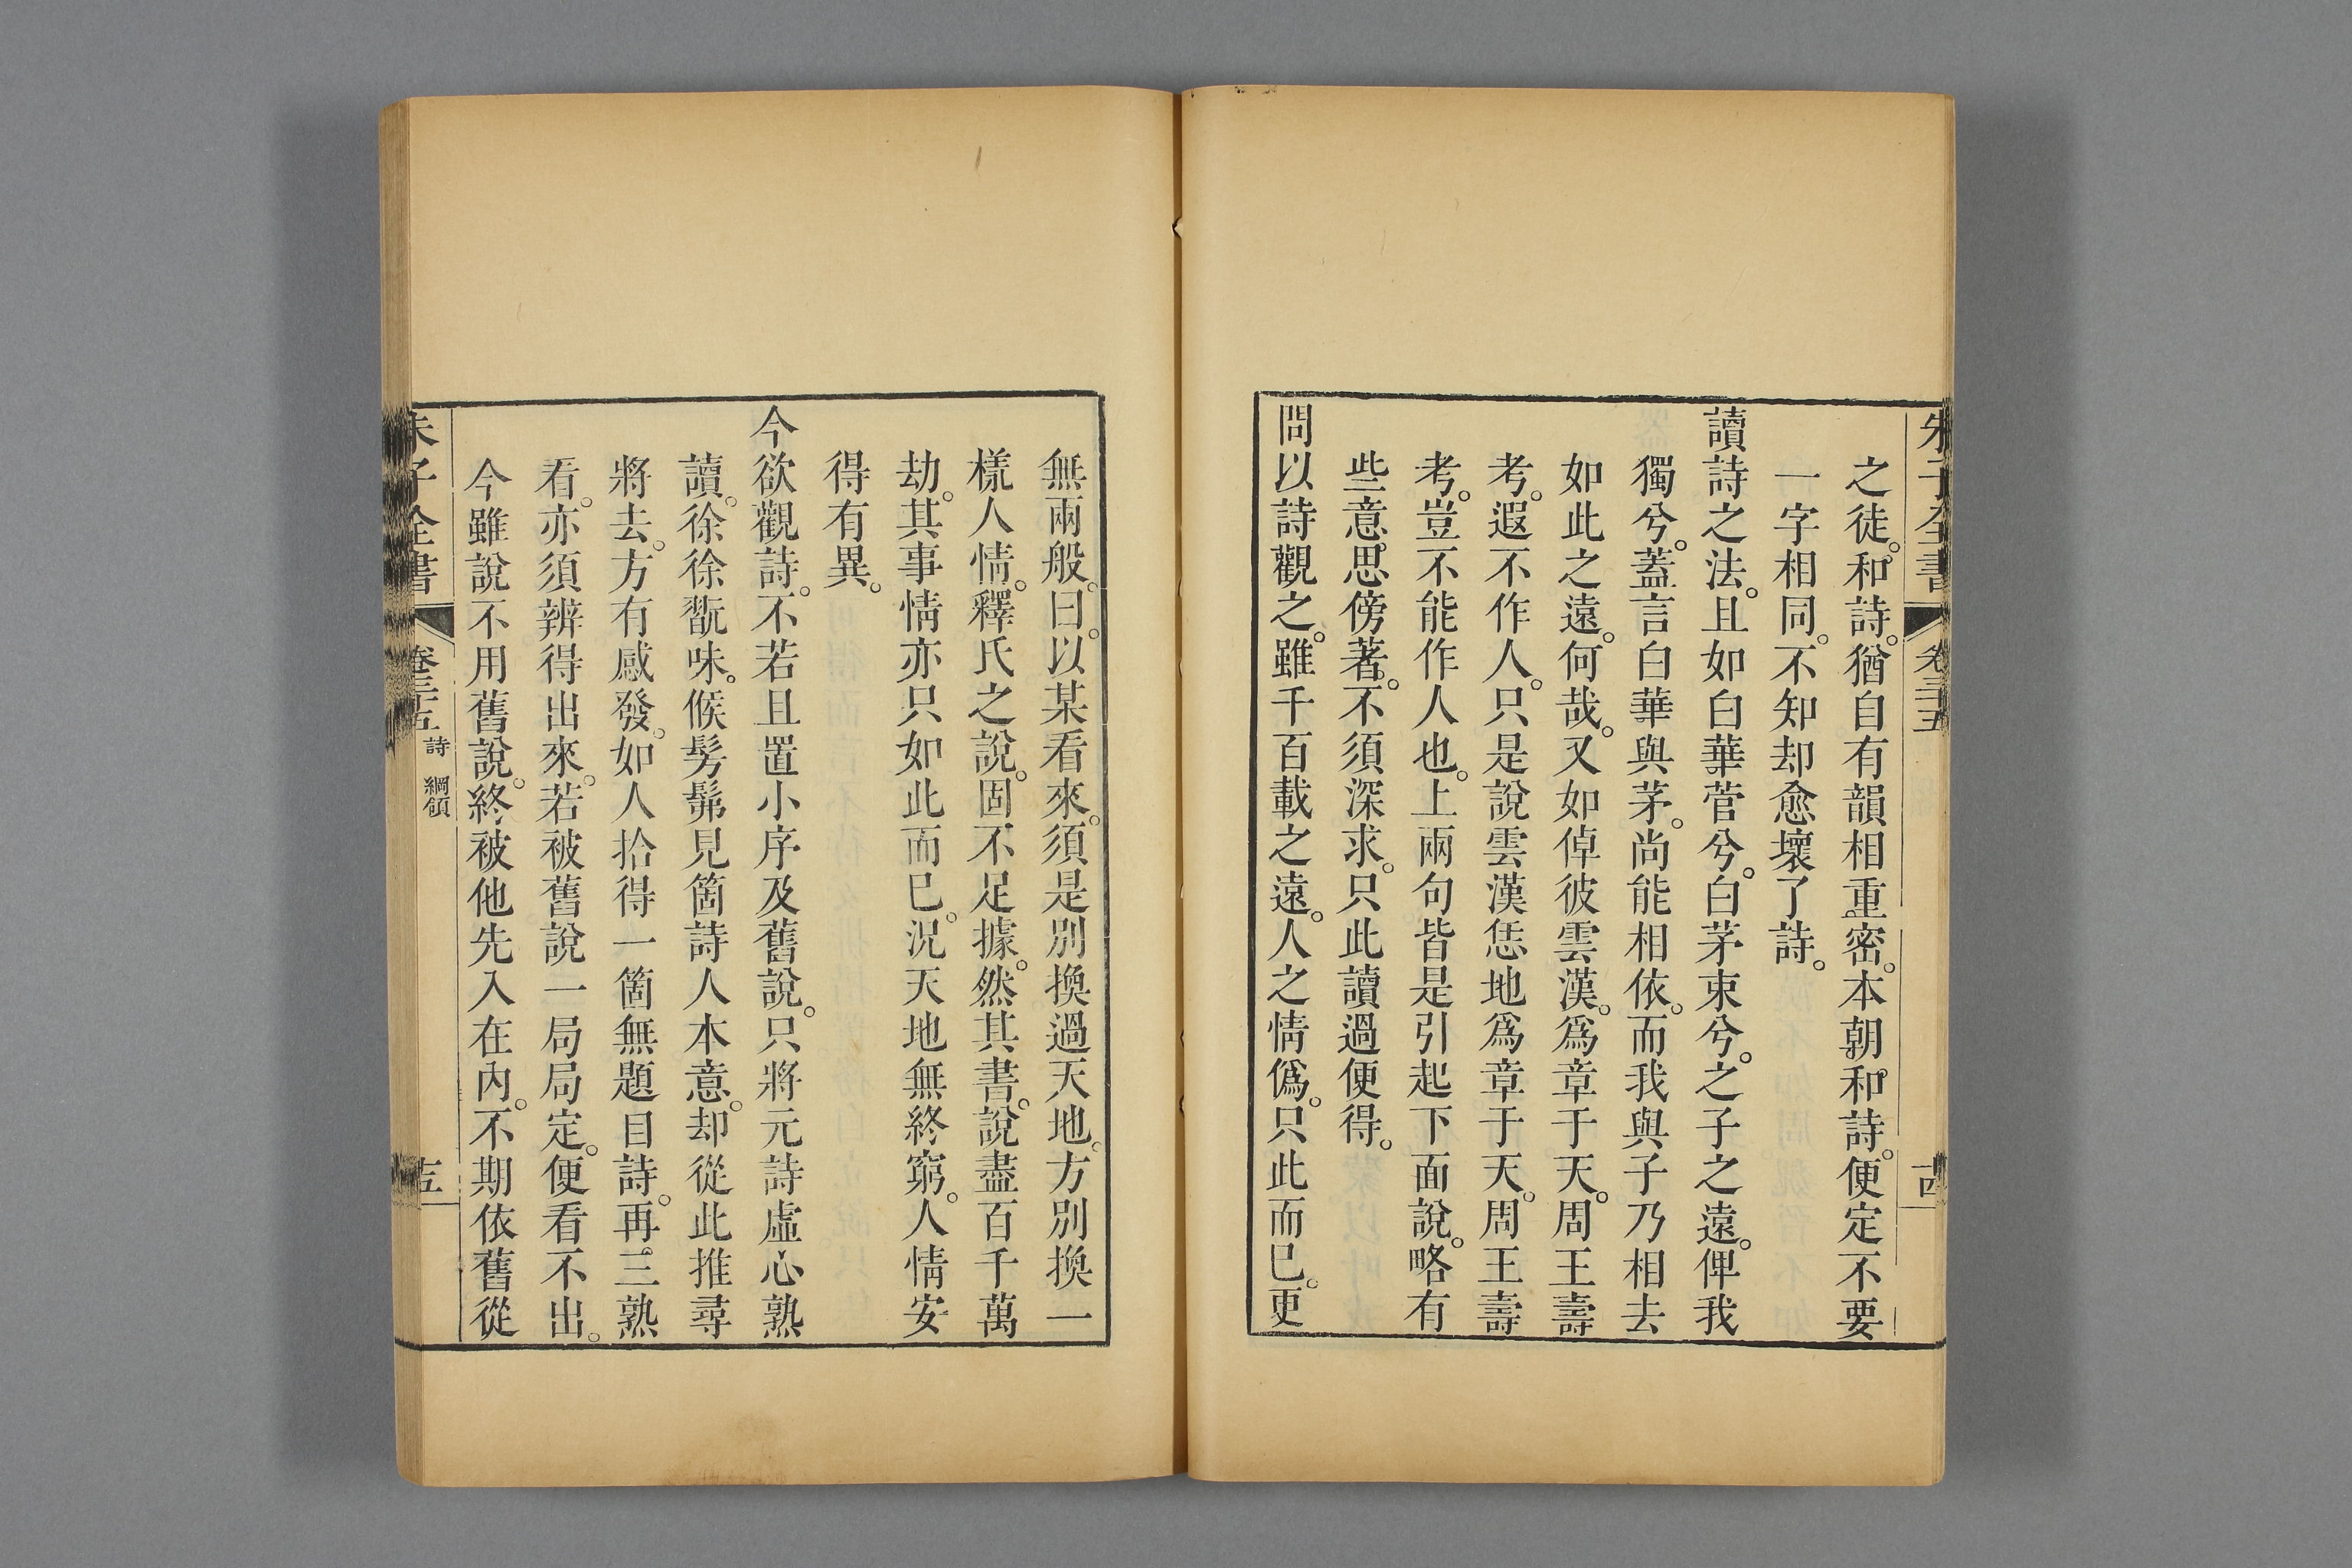 朱子全書 卷三十五 十四
之徒。和詩。猶自有韻相重密。本朝和詩。便定不要
一字相同。不知却愈壞了詩。
讀詩之法。且如白華菅兮。白茅束兮。之子之遠。俾我
獨兮。蓋言白華與茅。尚能相依。而我與子乃相去
如此之遠。何哉。又如倬彼雲漢。爲章于天。周王壽
考。遐不作人。只是說雲漢恁地爲章于天。周王壽
考。豈不能作人也。上兩句皆是引起下面說。略有
些意思傍著。不須深求。只此讀過便得。
問以詩觀之。雖千百載之遠。人之情僞。只此而已。更
無兩般。曰。以某看來。須是別換過天地。方別換一
樣人情。釋氏之說。固不足據。然其書。說盡百千萬
劫。其事情亦只如此而已。況天地無終窮。人情安
得有異。
今欲觀詩。不若且置小序及舊說。只將元詩虛心熟
讀。徐徐翫味。候髣髴見箇詩人本意。却從此推尋
將去。方有感發。如人拾得一箇無題目詩。再三熟
看。亦須辨得出來。若被舊說一局局定。便看不出。
今雖說不用舊說。終被他先入在內。不期依舊從
朱子全書 卷三十五 詩 綱領 十五